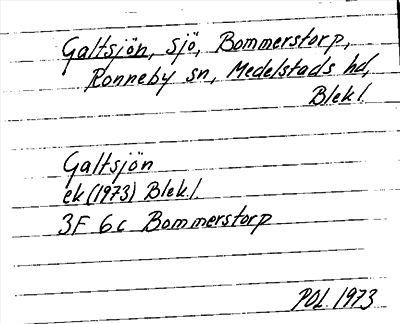 Galtsjön, sjö, Bommerstorp,
Ronneby sn, Medelstads hd,
Blekl.
Galtsjön
ek (1973) Blek.l.
3F 6c Bommerstorp
POL 1973